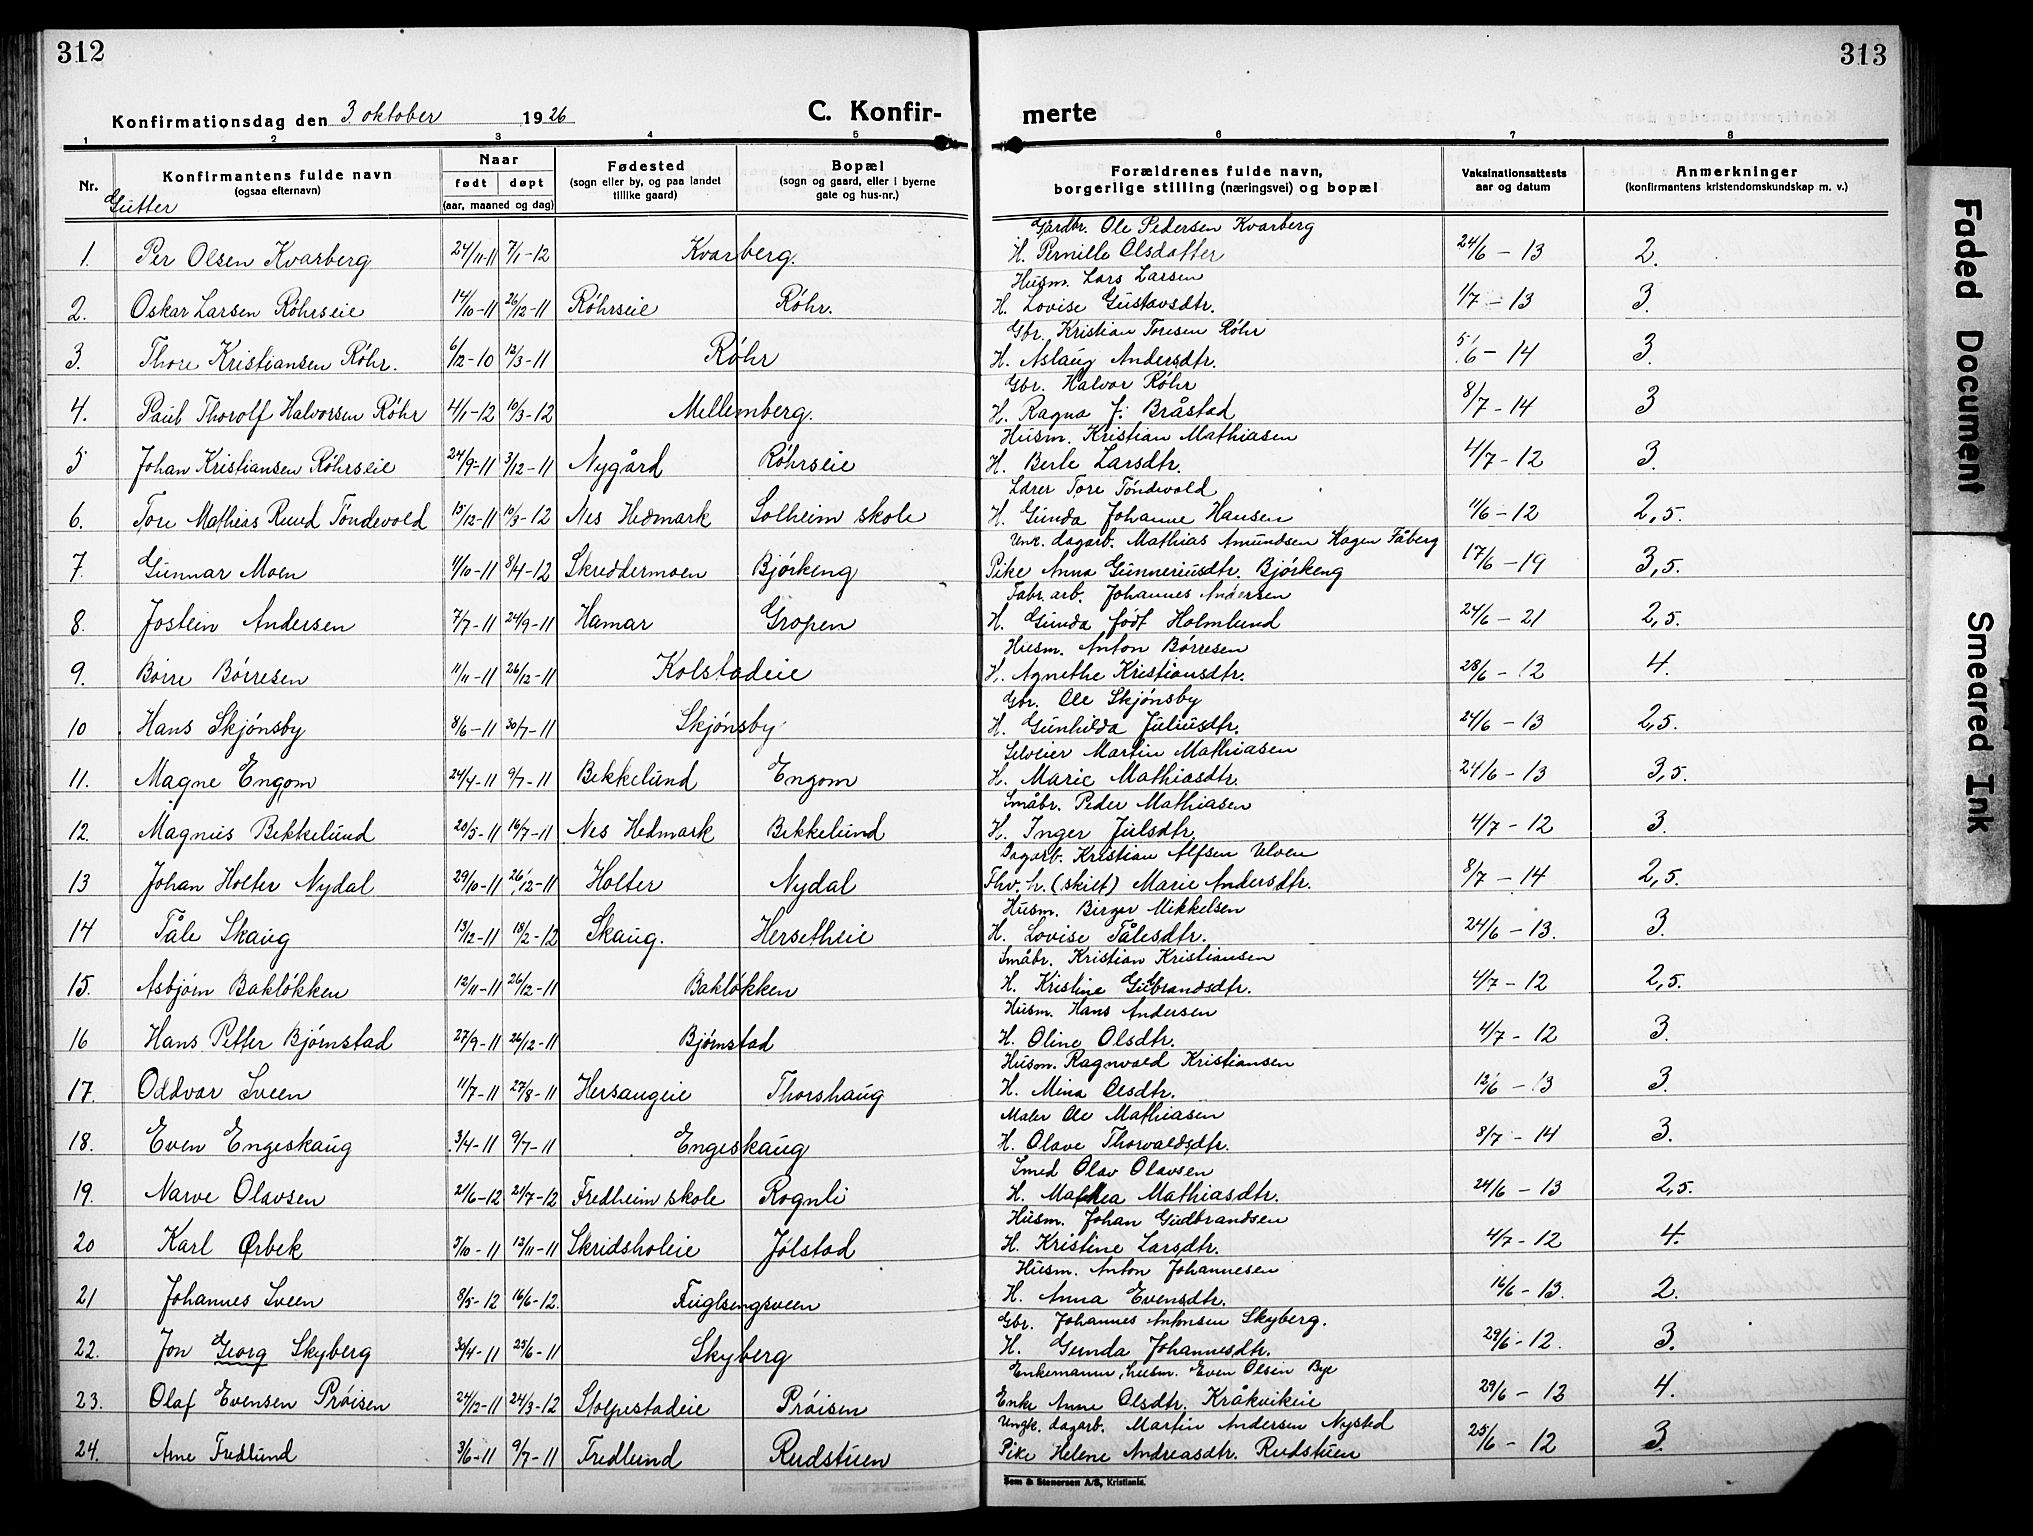 312
313
Konfirmationsdag den 3 oktober 1926
C. Konfir-
merte
1 2 3 4 5 6 7 8
Nr. Konfirmantens fulde navn (ogsaa efternavn) Naar født døpt (aar, maaned og dag) Fødested (sogn eller by, og paa landet tillike gaard) Bopæl (sogn og gaard, eller i byerne gate og hus-nr.) Forældrenes fulde navn, borgerlige stilling (næringsvei) og bopæl Vaksinationsattests aar og datum Anmerkninger (konfirmantens kristendomskundskap m. v.)
Gutter
Gårdbr. Ole Pedersen Kvarberg
1. Per Olsen Kvarberg 24/11-11 7/1-12 Kvarberg. H. Pernille Olsdatter 24/6-13 2.
Husm. Lars Larsen
2. Oskar Larsen Röhrseie 14/10-11 26/12-11 Röhrseie Röhr. H. Lovise Gustavsdtr. 1/7-13 3.
Gbr. Kristian Toresen Röhr
3. Thore Kristiansen Röhr. 6/12-10 12/3-11 Röhr H. Aslaug Andersdtr. 5/6-14 3.
Gbr. Halvor Röhr
4. Paul Thorolf Halvorsen Röhr 4/1-12 10/3-12 Mellemberg. H. Ragna J. Bråstad 8/7-14 3
Husm. Kristian Mathiasen
5 Johan Kristiansen Röhrseie 24/9-11 3/12-11 Nygård Röhrseie H. Berte Larsdtr. 4/7-12 3.
Lærer Tore Töndevold
6. Tore Mathias Ruud Töndevold 15/12-11 10/3-12 Nes Hedmark Solheim skole H. Gunda Johanne Hansen 11/6-12 2,5.
Unk. dagarb. Mathias Amundsen Hagen Fåberg
7. Gunnar Moen 11/10-11 8/4-12 Skreddermoen Björkeng Pike Anna Gunneriusdtr. Björkeng 17/6-19 3,5.
Fabr. arb. Johannes Andersen
8. Jostein Andersen 7/7-11 24/9-11 Hamar Gropen H. Gunda født Holmlund 24/6-21 2,5.
Husm. Anton Börresen
9. Börre Börresen 11/11-11 26/12-11 Kolstadeie H. Agnethe Kristiansdtr. 28/6-12 4.
Gbr. Ole Skjönsby
10 Hans Skjönsby 8/6-11 30/7-11 Skjönsby H. Gunhilda Juliusdtr. 24/6-13 2,5.
Selveier Martin Mathiasen
11. Magne Engom 24/4-11 9/7-11 Bekkelund Engom H. Marie Mathiasdtr. 24/6-13 3,5.
Småbr. Peder Mathiasen
12. Magnus Bekkelund 20/5-11 16/7-11 Nes Hedmark Bekkelund H. Inger Julsdtr. 4/7-12 3.
Dagarb. Kristian Alfsen Ulven
13 Johan Holter Nydal 29/10-11 26/12-11 Holter Nydal Fhv. h. (skilt) Marie Andersdtr. 8/7-14 2,5.
Husm. Birger Mikkelsen
14 Tåle Skaug 13/12-11 18/2-12 Skaug. Hersetheie H. Lovise Tålesdtr. 24/6-13. 3.
Småbr. Kristian Kristiansen
15. Asbjörn Baklökken 12/11-11 26/12-11 Baklökken H. Kristine Gulbrandsdtr. 4/7-12 2,5.
Husm. Hans Andersen
16 Hans Petter Björnstad 27/9-11 26/12-11 Björnstad H. Oline Olsdtr. 4/7-12 3.
Husm. Ragnvald Kristiansen
17. Oddvar Sveen 11/7-11 27/8-11 Hersaugeie Thorshaug H. Mina Olsdtr. 12/6-13 3.
Maler Ole Mathiasen
18. Even Engeskaug 3/4-11 9/7-11 Engeskaug H. Olave Thorvaldsdtr. 8/7-14 3.
Smed Olav Olavsen
19. Narve Olavsen 21/6-12 21/7-12 Fredheim skole Rognli H. Mathea Mathiasdtr. 24/6-13 2,5.
Husm. Johan Gudbrandsen
20 Karl Ørbek 5/10-11 12/11-11 Skridsholeie Jölstad H. Kristine Larsdtr. 4/7-12 4.
Husm. Anton Johannesen
21 Johannes Sveen 8/5-12 16/6-12. Fuglsengsveen H. Anna Evensdtr. 16/6-13. 2.
Gbr. Johannes Antonsen Skyberg.
22. Jon Georg Skyberg 30/4-11 25/6-11 Skyberg H. Gunda Johannesdtr. 29/6-12. 3.
Enkemann, husm. Even Olsen Bye
23. Olaf Evensen Pröisen 24/12-11 24/3-12 Stolpestadeie Pröisen Enke Anne Olsdtr. Kråkvikeie 29/6-12 4.
Ungk. dagarb. Martin Andersen Nystad
24. Arne Fredlund 3/6-11 9/7-11 Fredlund Rudstuen Pike Helene Andreasdtr. Rudstuen 25/6-12 3.
Sem & Stenersen A/S, Kristiania.
Faded Document
Smeared Ink